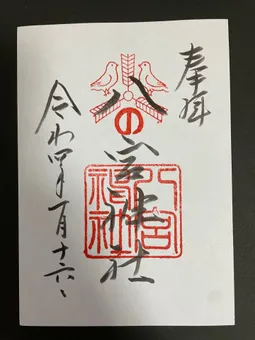 奉拝
八の宮神社
令和四年一月十六日
八宮
神社